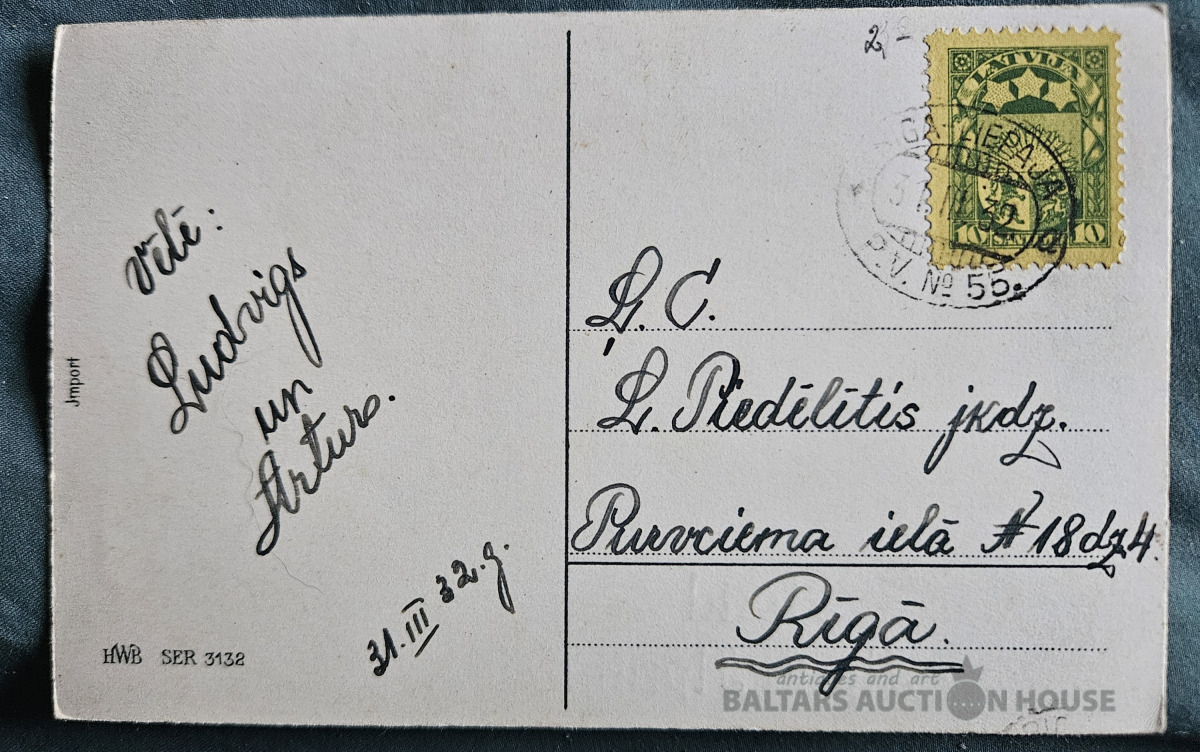 Vēlē:
Ludvigs
un
Arturs.
31. III 32. g.
Jmport
HWB SER 3132
2
LATVIJA
10 10
LIEPAJA
P.V. № 55.
Ļ. C.
Ļ. Piedēlītis jkdz.
Purvciema ielā № 18 dz 4.
Rīgā.
antiques and art
BALTARS AUCTION HOUSE